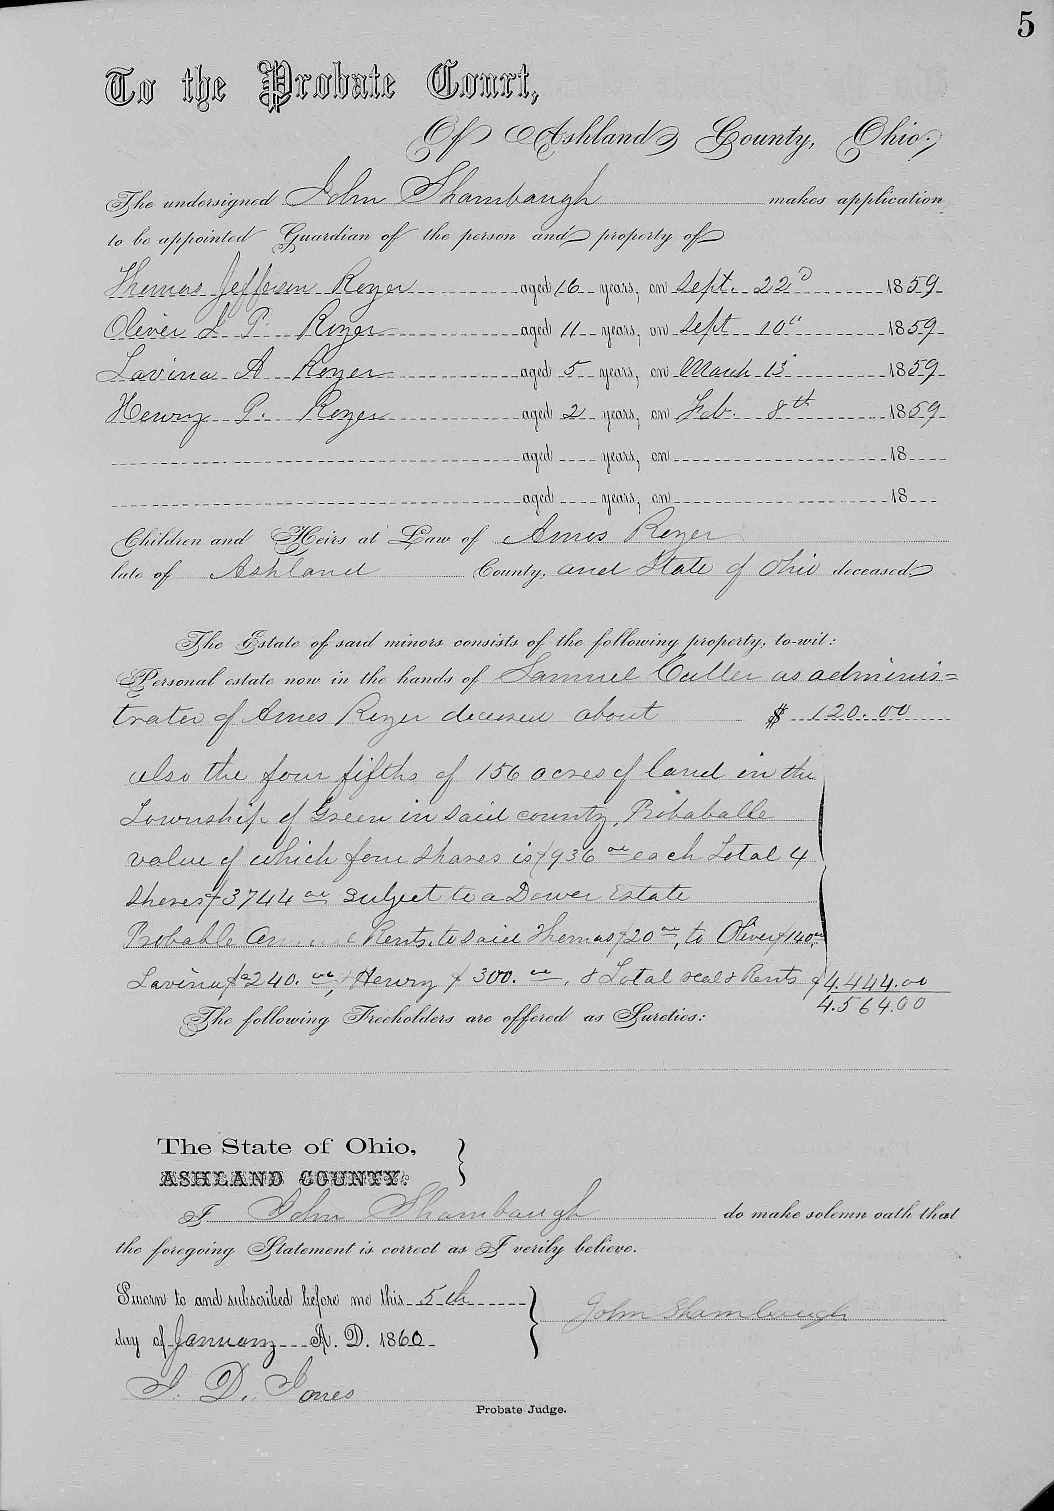 5
To the Probate Court,
Of Ashland County, Ohio.
The undersigned John Shambaugh makes application
to be appointed Guardian of the person and property of
Thomas Jefferson Royer aged 16 years, on Sept. 22d 1859
Oliver L P. Royer aged 11 years, on Sept 10" 1859
Lavina A Royer aged 5 years, on March 13 1859
Henry P. Royer aged 2 years, on Feb. 8th 1859
aged years, on 18
aged years, on 18
Children and Heirs at Law of Amos Royer
late of Ashland County, and State of Ohio deceased.
The Estate of said minors consists of the following property, to-wit:
Personal estate now in the hands of Samuel Culler as adminis=
trator of Amos Royer deceased about $ 120.00
also the four fifths of 156 acres of land in the
Township of Green in said county, Probaballe
value of which four shares is $936 00 each Total 4
Shares $3744 00 Subject to a Dower Estate
Probable Rents, to said Thomas $20 00, to Oliver $140 00,
Lavina $240. 00, + Henry $ 300. 00, & Total real & Rents $4.444.00
4.564.00
The following Freeholders are offered as Sureties:
The State of Ohio,
ASHLAND COUNTY.
I John Shambaugh do make solemn oath that
the foregoing Statement is correct as I verily believe.
Sworn to and subscribed before me this 5th
John Shambaugh
day of January A. D. 1860
J. D. Jones
Probate Judge.